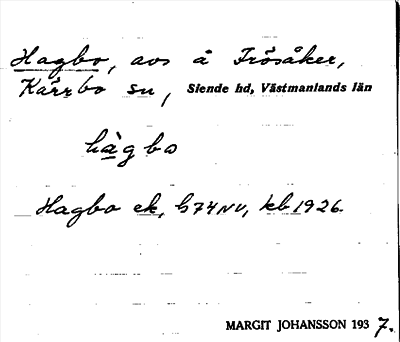 Hagbo, avs å Frösåker,
Kärrbo sn, Siende hd, Västmanlands län
hàgbo
Hagbo ek, G74NV, kb 1926.
MARGIT JOHANSSON 1937.